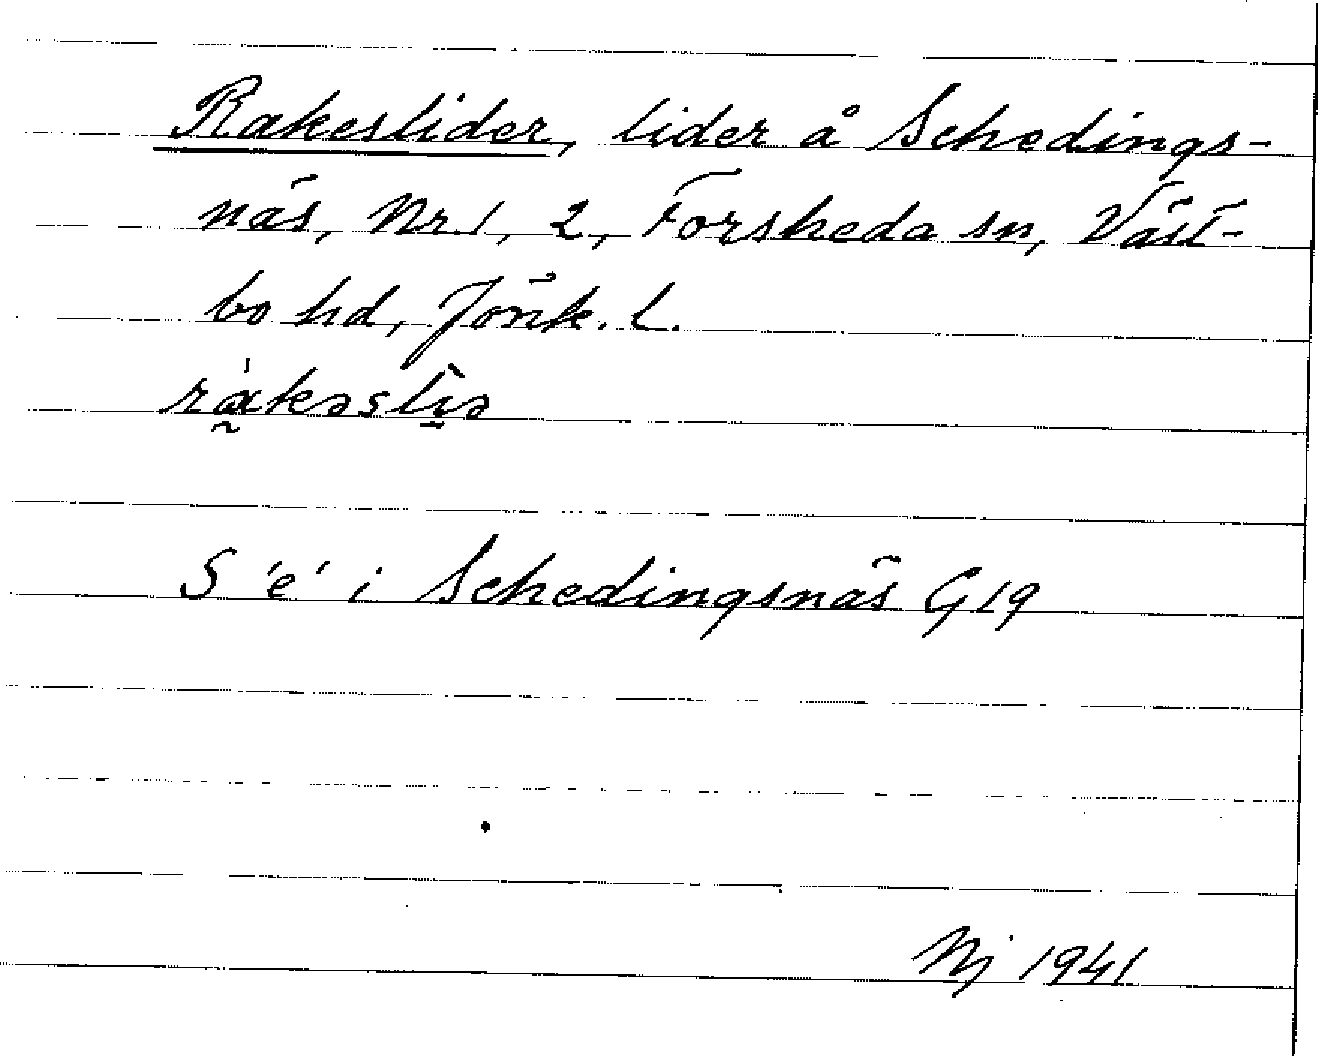 Rakeslider, lider å Schedings-
näs, Nr 1, 2, Forsheda sn, Väst-
bo hd, Jönk. L.
S 'e' i Schedingsnäs G 19
Nj 1941